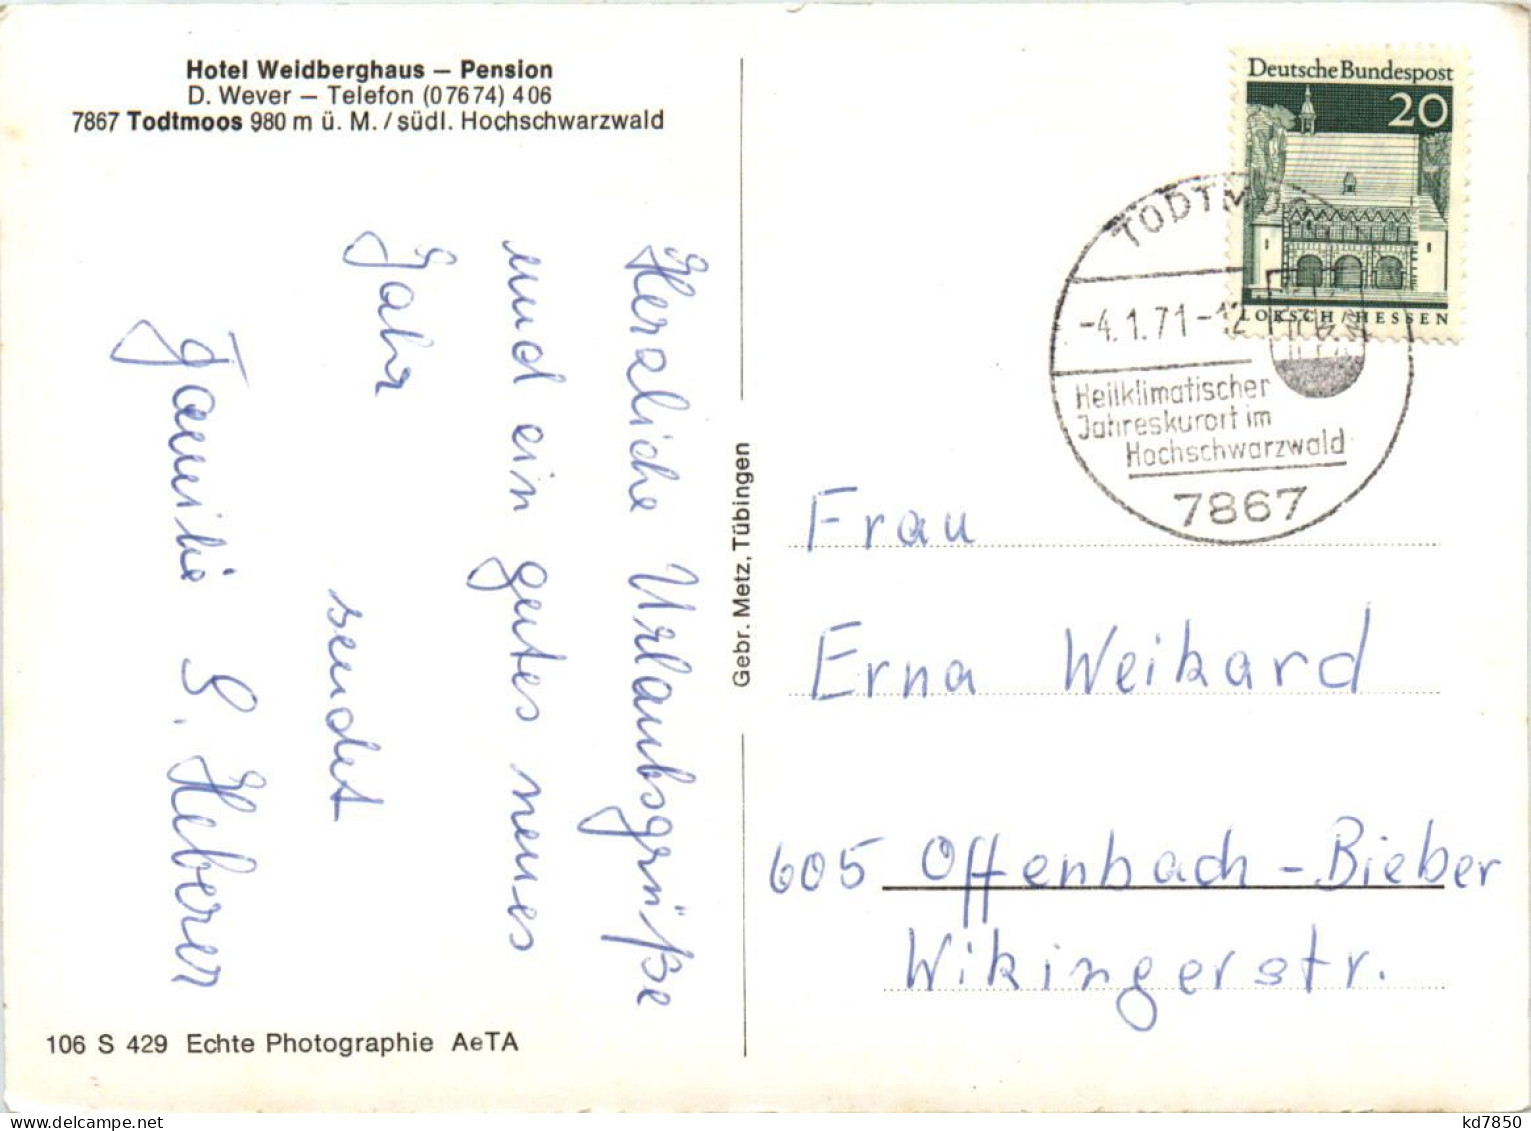 Hotel Weidberghaus – Pension
D. Wever – Telefon (07674) 406
7867 Todtmoos 980 m ü. M. / südl. Hochschwarzwald
Herzliche Urlaubsgrüße
und ein gutes neues
Jahr
sendet
Familie S. Heberer
106 S 429 Echte Photographie AeTA
Gebr. Metz, Tübingen
Deutsche Bundespost
20
LORSCH / HESSEN
TODTMOOS
-4.1.71-12
Heilklimatischer
Jahreskurort im
Hochschwarzwald
7867
Frau
Erna Weikard
605 Offenbach - Bieber
Wikingerstr.
kd7850